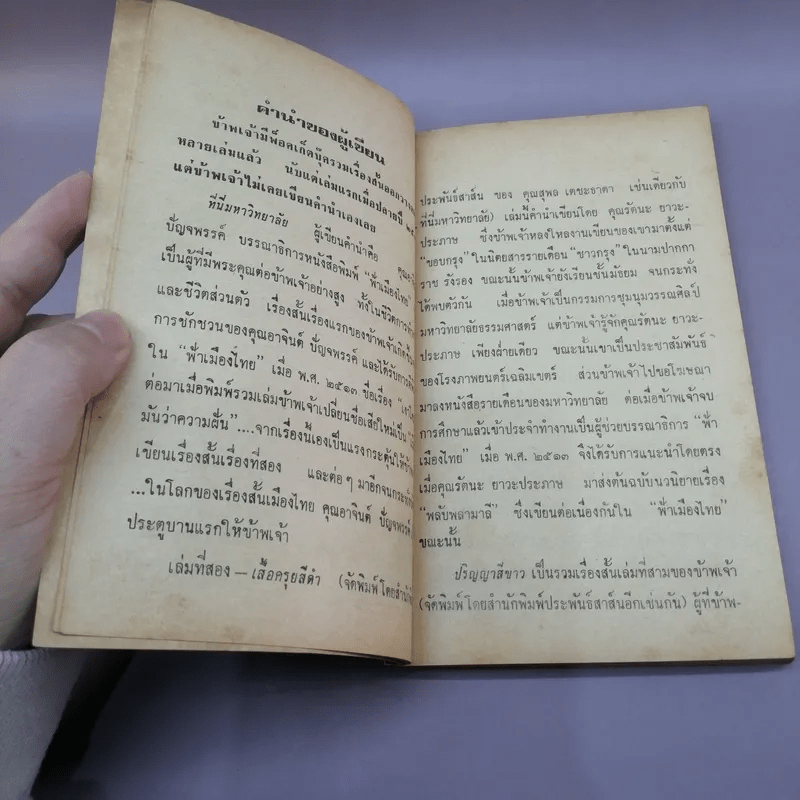 คำนำของผู้เขียน
ข้าพเจ้ามีพ็อคเก็ตบุ๊ครวมเรื่องสั้นออกวาง
หลายเล่มแล้ว นับแต่เล่มแรกเมื่อปลายปี
แต่ข้าพเจ้าไม่เคยเขียนคำนำเองเลย
ที่นี่มหาวิทยาลัย ผู้เขียนคำนำคือ
ปัญจพรรค์ บรรณาธิการหนังสือพิมพ์ "ฟ้าเมืองไทย"
เป็นผู้ที่มีพระคุณต่อข้าพเจ้าอย่างสูง ทั้งในชีวิตการ
และชีวิตส่วนตัว เรื่องสั้นเรื่องแรกของข้าพเจ้าเกิด
การชักชวนของคุณอาจินต์ ปัญจพรรค์ และได้รับการ
ใน "ฟ้าเมืองไทย" เมื่อ พ.ศ. ๒๕๑๓ ชื่อเรื่อง
ต่อมาเมื่อพิมพ์รวมเล่มข้าพเจ้าเปลี่ยนชื่อเสียใหม่เป็น
มันว่าความฝัน"....จากเรื่องนี้เองเป็นแรงกระตุ้นให้
เขียนเรื่องสั้นเรื่องที่สอง และต่อๆ มาอีกจนกระทั่ง
...ในโลกของเรื่องสั้นเมืองไทย คุณอาจินต์ ปัญจพรรค์
ประตูบานแรกให้ข้าพเจ้า
เล่มที่สอง — เสื้อครุยสีดำ (จัดพิมพ์โดยสำนัก
ประพันธ์สาส์น ของ คุณสุพล เตชะธาดา เช่นเดียวกับ
ที่นี่มหาวิทยาลัย) เล่มนี้คำนำเขียนโดย คุณรัตนะ ยาวะ-
ประภาษ ซึ่งข้าพเจ้าหลงใหลงานเขียนของเขามาตั้งแต่
"ขอบกรุง" ในนิตยสารรายเดือน "ชาวกรุง" ในนามปากกา
ราช รังรอง ขณะนั้นข้าพเจ้ายังเรียนชั้นมัธยม จนกระทั่ง
ได้พบตัวกัน เมื่อข้าพเจ้าเป็นกรรมการชุมนุมวรรณศิลป์
มหาวิทยาลัยธรรมศาสตร์ แต่ข้าพเจ้ารู้จักคุณรัตนะ ยาวะ-
ประภาษ เพียงฝ่ายเดียว ขณะนั้นเขาเป็นประชาสัมพันธ์
ของโรงภาพยนตร์เฉลิมเขตร์ ส่วนข้าพเจ้าไปขอโฆษณา
มาลงหนังสือรายเดือนของมหาวิทยาลัย ต่อเมื่อข้าพเจ้าจบ
การศึกษาแล้วเข้าประจำทำงานเป็นผู้ช่วยบรรณาธิการ "ฟ้า
เมืองไทย" เมื่อ พ.ศ. ๒๕๑๓ จึงได้รับการแนะนำโดยตรง
เมื่อคุณรัตนะ ยาวะประภาษ มาส่งต้นฉบับนวนิยายเรื่อง
"พลับพลามาลี" ซึ่งเขียนต่อเนื่องกันใน "ฟ้าเมืองไทย"
ขณะนั้น
ปริญญาสีขาว เป็นรวมเรื่องสั้นเล่มที่สามของข้าพเจ้า
(จัดพิมพ์โดยสำนักพิมพ์ประพันธ์สาส์นอีกเช่นกัน) ผู้ที่ข้าพ-